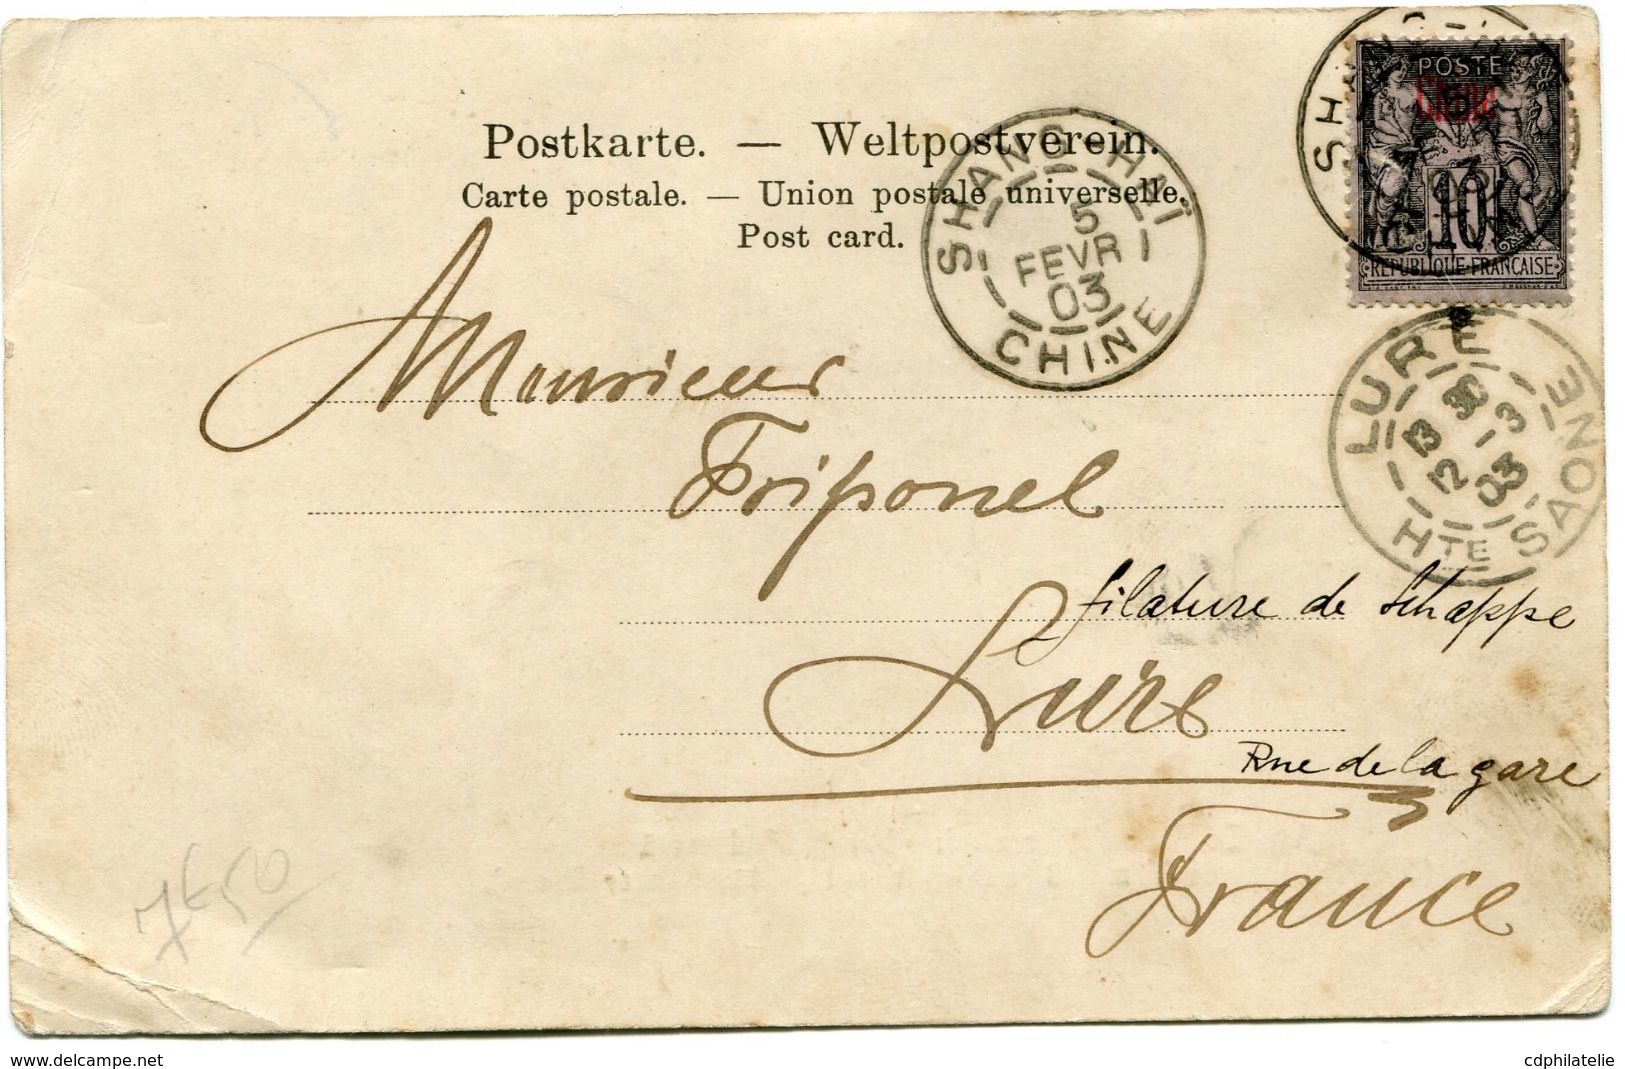 Postkarte. — Weltpostverein.
Carte postale. — Union postale universelle.
Post card.
SHANG-HAÏ
5
FEVR
03
CHINE
POSTE
Chine
10
REPUBLIQUE FRANÇAISE
LURE
13 30
12 - 3
03
HTE SAONE
Monsieur
Friponel
filature de Schappe
Lure
Rue de la gare
France
7€50
www.delcampe.net
cdphilatelie